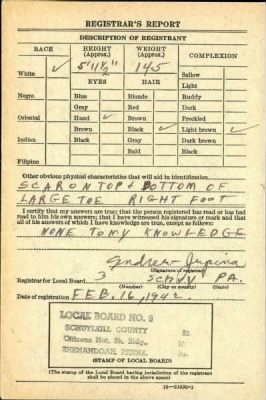 REGISTRAR'S REPORT
DESCRIPTION OF REGISTRANT
RACE HEIGHT (Approx.) WEIGHT (Approx.) COMPLEXION
White ✓ 5'11½" 145 Sallow
EYES HAIR Light
Negro Blue Blonde Ruddy
Gray Red Dark
Oriental Hazel ✓ Brown Freckled
Brown Black ✓ Light brown ✓
Indian Black Gray Dark brown
Bald Black
Filipino
Other obvious physical characteristics that will aid in identification
SCAR ON TOP + BOTTOM OF
LARGE TOE RIGHT FOOT
I certify that my answers are true; that the person registered has read or has had
read to him his own answers; that I have witnessed his signature or mark and that
all of his answers of which I have knowledge are true, except as follows:
NONE TO MY KNOWLEDGE
Andrew
(Signature of registrar)
Registrar for Local Board 3 SCHUY PA.
(Number) (City or county) (State)
Date of registration FEB. 16, 1942
LOCAL BOARD NO. 3
SCHUYLKILL COUNTY
Citizens Nat. Bk. Bldg.
SHENANDOAH, PENNA.
(STAMP OF LOCAL BOARD)
(The stamp of the Local Board having jurisdiction of the registrant
shall be placed in the above space)